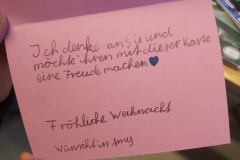 Ich denke an sie und
möchte ihnen mit dieser Karte
eine Freude machen
Fröhliche Weihnacht
wünscht in Amy